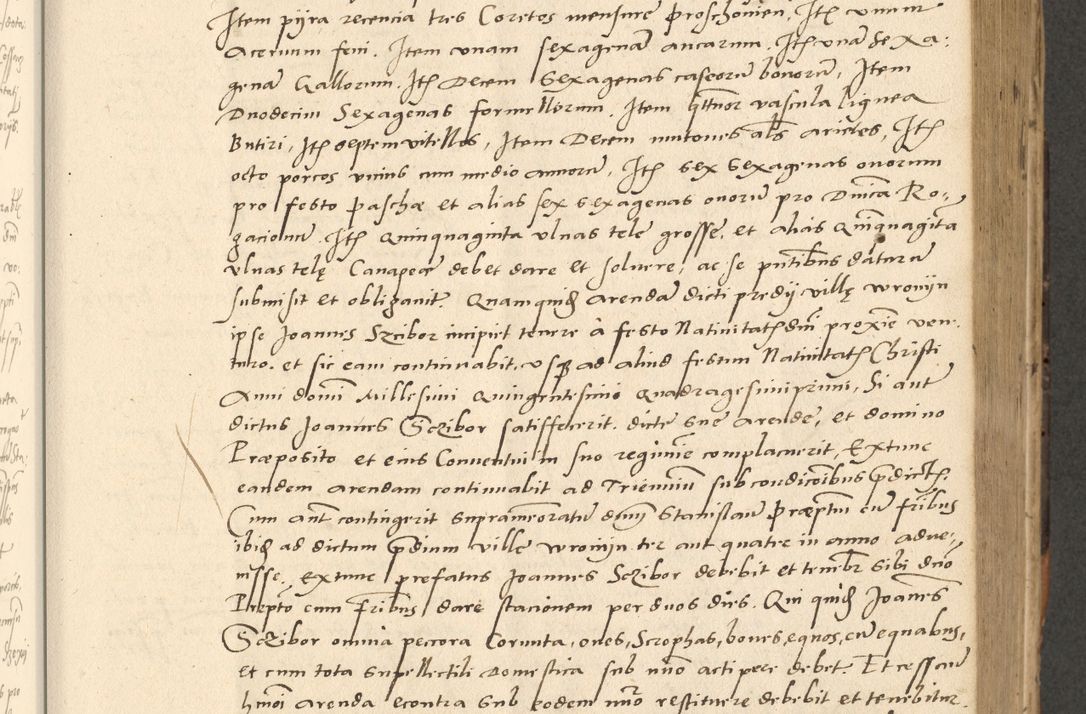 Item pyra recencia tres Coretos mensure Proschovien, Itē unum
Acervum feni. Item unam sexagenā aucarum. Itē unā Sexa-
genā Gallorum. Itē Decem Sexagenas caseorū bonorū, Item
Duodecim Sexagenas formellorum. Item q̄ttuor vascula lignea
Butiri, Itē septem vitellos, Item Decem mutones als arietes, Itē
octo porcos unius cum medio annorū, Itē sex Sexagenas ovorum
pro festo Paschæ et alias sex sexagenas ovorū pro Dnica Ro-
gacionū. Itē Quinquaginta ulnas tele grosse, et alias Quinquagita
ulnas telę Canapeę debet dare et solvere, ac se pntibus daturū
submisit et obligavit. Quamquid arendā dicti predii villę Wronyn
ipse Joannes Sczibor incipiet tenere à festo Nativitatē dni proxime ven-
turo. et sic eam continuabit, usq ad aliud festum Nativitatē Christi
Anni domī Millesimi Quingentesimi Quadragesimi primi, Si aut
dictus Joannes Sczibor satisfecerit. dicte sue arende, et domino
Præposito et eius Conventui in suo regimine complacuerit, Extunc
eandem arendam continuabit ad Trienniū sub condicōibus p̄dictē.
Cum aut contingerit supramēoratū dnum Stanislaū Præptum cū fribus
ibid ad dictum p̄dium ville Wronyn ter aut quater in anno adve-
nisse, Extunc prefatus Joannes Sczibor debebit et tenebr sibi dno
Prepto cum Fribus dare stacionem per duos dies. Qui quid Joanes
Sczibor omnia peccora Cornuta, oves, Scrophas, boves, equos, cū equabus,
et cum tota supellectili Domestica sub nuō accipere debet. Et cessū
hmōi arenda econtra sub eodem nuō restituere debebit et tenebitur.